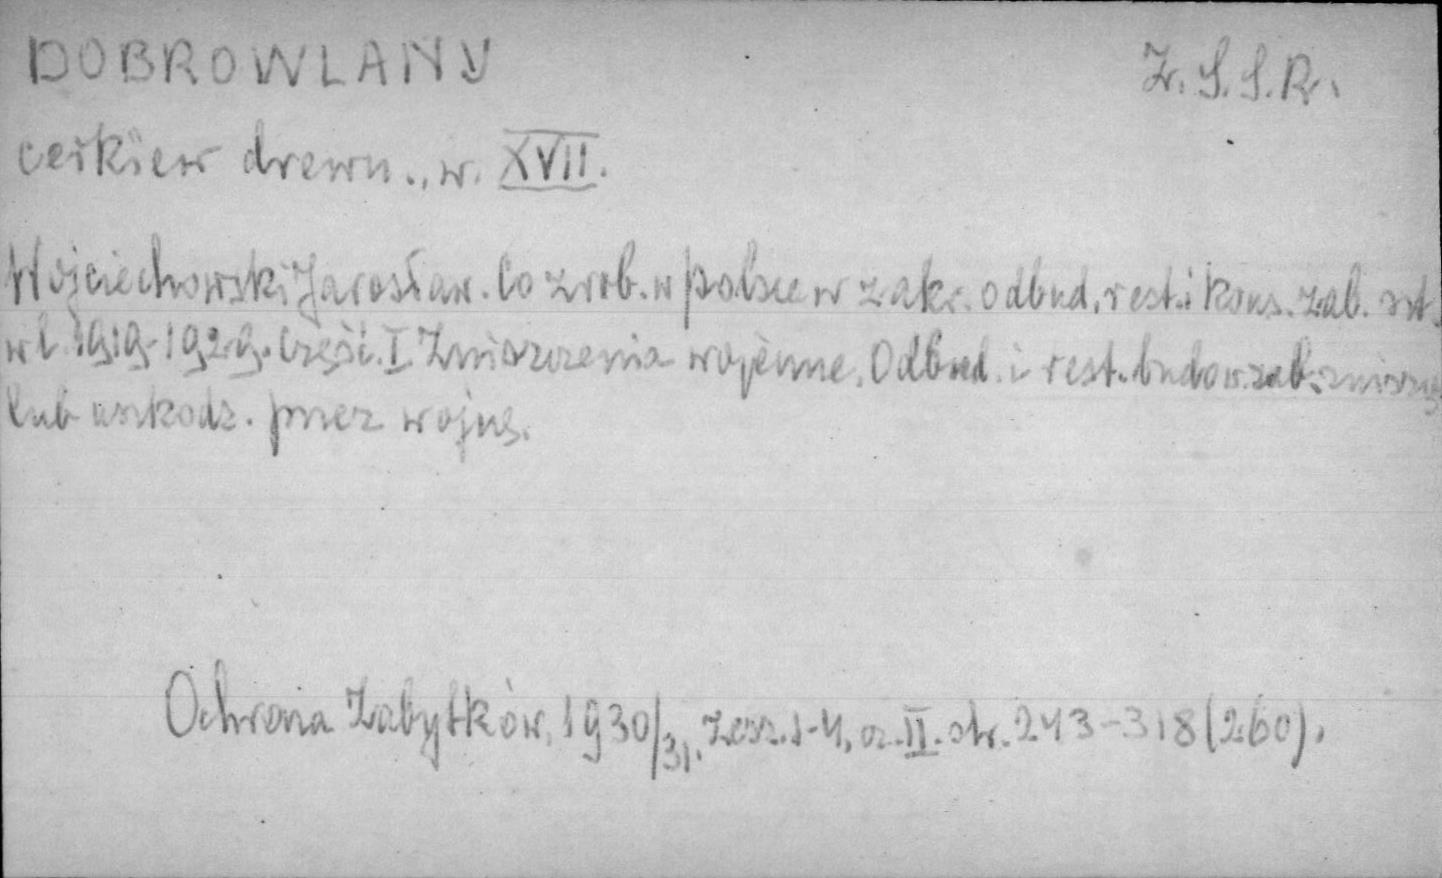 DOBROWLANY Z.S.S.R.
cerkiew drewn., w. XVII.
Wojciechowski Jarosław. Co zrob. w Polsce w zakr. odbud., rest. i kons. zab. szt.
w l. 1919-1929. Część. I. Zniszczenia wojenne. Odbud. i rest. budow. zab. zniszcz.
lub uszkodz. przez wojnę.
Ochrona Zabytków, 1930/31. zesz. 1-4, cz. II. str. 243-318 (260).